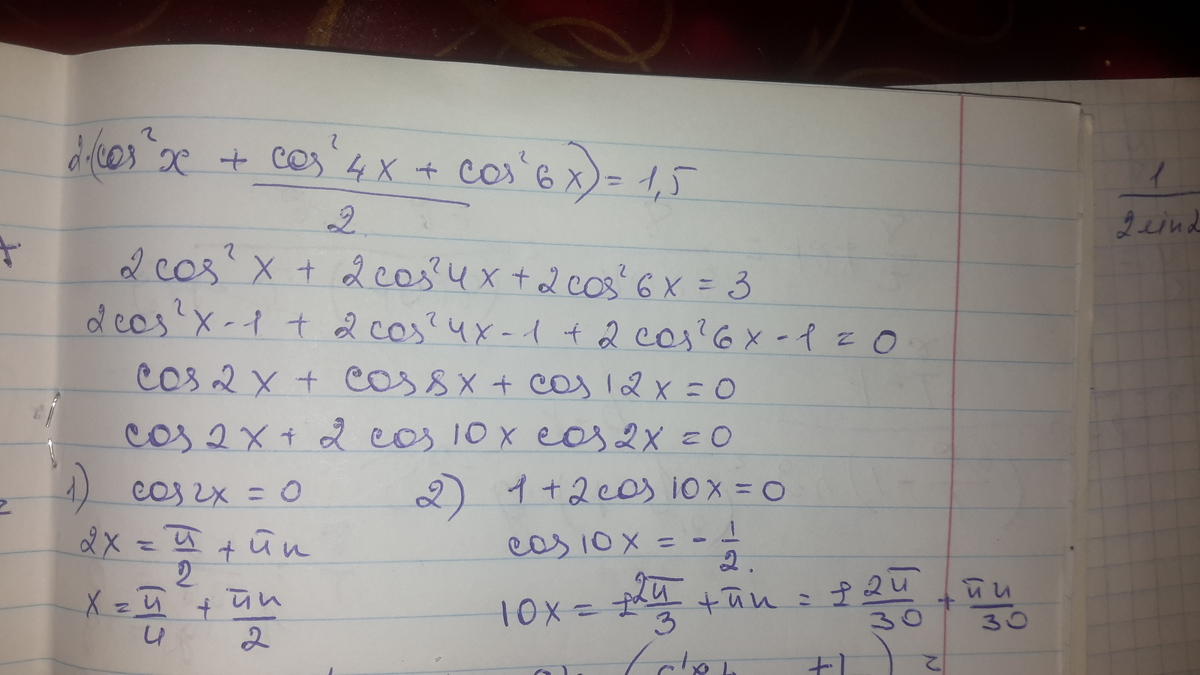 2·(cos²x + cos²4x + cos²6x) = 1,5
2
2cos²x + 2cos²4x + 2cos²6x = 3
2cos²x - 1 + 2cos²4x - 1 + 2cos²6x - 1 = 0
cos2x + cos8x + cos12x = 0
cos2x + 2 cos10x cos2x = 0
1) cos2x = 0
2x = π/2 + πn
x = π/4 + πn/2
2) 1 + 2cos10x = 0
cos10x = -1/2.
10x = ±2π/3 + πn = ±2π/30 + πn/30
1/2sin2